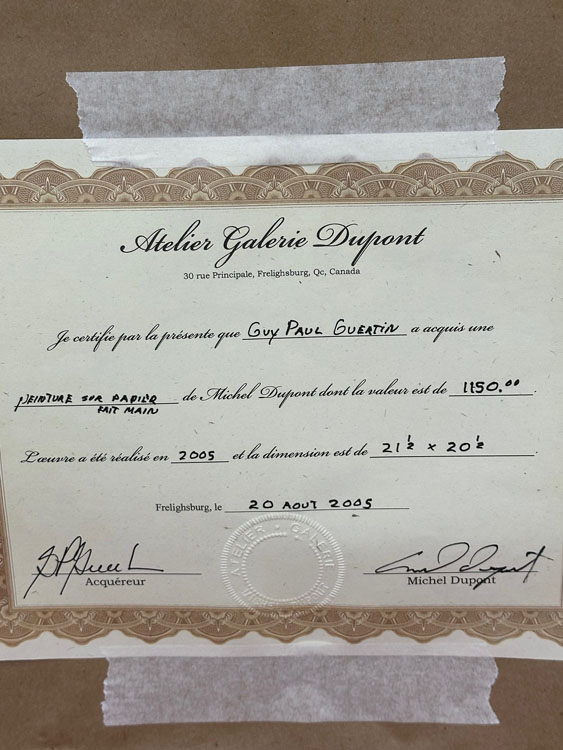 Atelier Galerie Dupont
30 rue Principale, Frelighsburg, Qc, Canada
Je certifie par la présente que GUY PAUL GUERTIN a acquis une
PEINTURE SUR PAPIER de Michel Dupont dont la valeur est de 1150.00.
FAIT MAIN
L'œuvre a été réalisé en 2005 et la dimension est de 21 ½ x 20 ½.
Frelighsburg, le 20 AOUT 2005
Acquéreur Michel Dupont
ATELIER · GALERIE